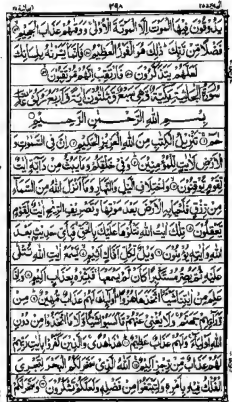 يَذُوقُونَ فِيهَا الْمَوْتَ إِلَّا الْمَوْتَةَ الْأُولَىٰ وَوَقَاهُمْ عَذَابَ الْجَحِيمِ
فَضْلًا مِنْ رَبِّكَ ذَٰلِكَ هُوَ الْفَوْزُ الْعَظِيمُ فَإِنَّمَا يَسَّرْنَاهُ بِلِسَانِكَ
لَعَلَّهُمْ يَتَذَكَّرُونَ فَارْتَقِبْ إِنَّهُمْ مُرْتَقِبُونَ
سُورَةُ الْجَاثِيَةِ مَكِّيَّةٌ
بِسْمِ اللَّهِ الرَّحْمَٰنِ الرَّحِيمِ
حم تَنْزِيلُ الْكِتَابِ مِنَ اللَّهِ الْعَزِيزِ الْحَكِيمِ إِنَّ فِي السَّمَاوَاتِ وَ
الْأَرْضِ لَآيَاتٍ لِلْمُؤْمِنِينَ وَفِي خَلْقِكُمْ وَمَا يَبُثُّ مِنْ دَابَّةٍ آيَاتٌ
لِقَوْمٍ يُوقِنُونَ وَاخْتِلَافِ اللَّيْلِ وَالنَّهَارِ وَمَا أَنْزَلَ اللَّهُ مِنَ السَّمَاءِ
مِنْ رِزْقٍ فَأَحْيَا بِهِ الْأَرْضَ بَعْدَ مَوْتِهَا وَتَصْرِيفِ الرِّيَاحِ آيَاتٌ لِقَوْمٍ
يَعْقِلُونَ تِلْكَ آيَاتُ اللَّهِ نَتْلُوهَا عَلَيْكَ بِالْحَقِّ فَبِأَيِّ حَدِيثٍ بَعْدَ
اللَّهِ وَآيَاتِهِ يُؤْمِنُونَ وَيْلٌ لِكُلِّ أَفَّاكٍ أَثِيمٍ يَسْمَعُ آيَاتِ اللَّهِ تُتْلَىٰ
عَلَيْهِ ثُمَّ يُصِرُّ مُسْتَكْبِرًا كَأَنْ لَمْ يَسْمَعْهَا فَبَشِّرْهُ بِعَذَابٍ أَلِيمٍ وَإِذَا
عَلِمَ مِنْ آيَاتِنَا شَيْئًا اتَّخَذَهَا هُزُوًا أُولَٰئِكَ لَهُمْ عَذَابٌ مُهِينٌ مِنْ
وَرَائِهِمْ جَهَنَّمُ وَلَا يُغْنِي عَنْهُمْ مَا كَسَبُوا شَيْئًا وَلَا مَا اتَّخَذُوا مِنْ دُونِ
اللَّهِ أَوْلِيَاءَ وَلَهُمْ عَذَابٌ عَظِيمٌ هَٰذَا هُدًى وَالَّذِينَ كَفَرُوا بِآيَاتِ رَبِّهِمْ
لَهُمْ عَذَابٌ مِنْ رِجْزٍ أَلِيمٌ اللَّهُ الَّذِي سَخَّرَ لَكُمُ الْبَحْرَ لِتَجْرِيَ
الْفُلْكُ فِيهِ بِأَمْرِهِ وَلِتَبْتَغُوا مِنْ فَضْلِهِ وَلَعَلَّكُمْ تَشْكُرُونَ وَسَخَّرَ لَكُمْ